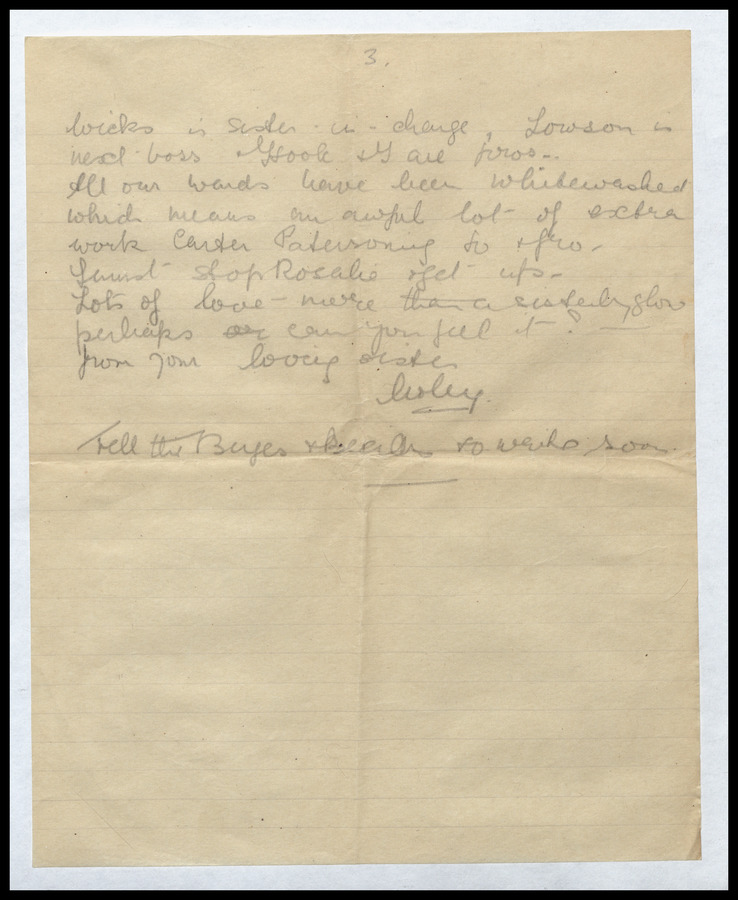 3.
Wicks is sister-in-charge, Lowson is
next boss & Hook & I are pros-.
All our wards have been whitewashed
which means an awful lot of extra
work Carter Patersoning to & fro-
I must stop Rosalie & get ups-
Lots of love - more than a sisterly glow
perhaps can you feel it? —
from your loving sister
Tell the to write soon.